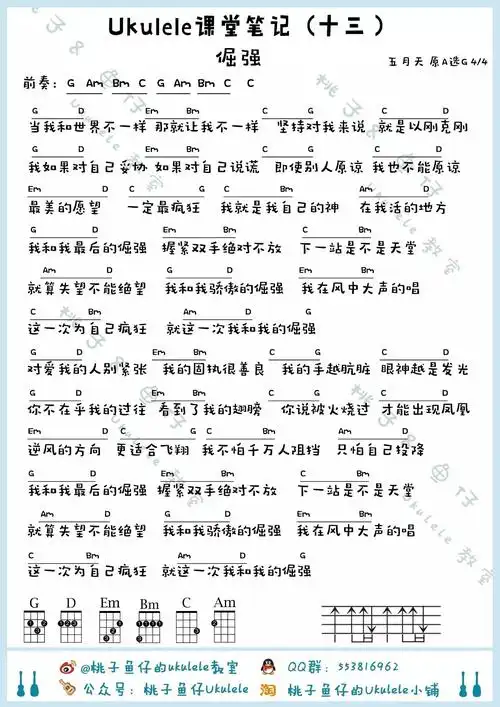 Ukulele课堂笔记（十三）
倔强
五月天 原A选G 4/4
前奏: G Am Bm C G Am Bm C C
G D Em Bm C G C D
当我和世界不一样 那就让我不一样 坚持对我来说 就是以刚克刚
G D Em Bm C G C D
我如果对自己妥协 如果对自己说谎 即使别人原谅 我也不能原谅
Em D C G C Bm Am D
最美的愿望 一定最疯狂 我就是我自己的神 在我活的地方
G D Em Bm C Bm
我和我最后的倔强 握紧双手绝对不放 下一站是不是天堂
Am D G D Em Bm
就算失望不能绝望 我和我骄傲的倔强 我在风中大声的唱
C Bm Am D G
这一次为自己疯狂 就这一次我和我的倔强
G D Em Bm C G C D
对爱我的人别紧张 我的固执很善良 我的手越肮脏 眼神越是发光
G D Em Bm C G C D
你不在乎我的过往 看到了我的翅膀 你说被火烧过 才能出现凤凰
Em D C G C Bm Am D
逆风的方向 更适合飞翔 我不怕千万人阻挡 只怕自己投降
G D Em Bm C Bm
我和我最后的倔强 握紧双手绝对不放 下一站是不是天堂
Am D G D Em Bm
就算失望不能绝望 我和我骄傲的倔强 我在风中大声的唱
C Bm Am D G
这一次为自己疯狂 就这一次我和我的倔强
G D Em Bm C Am
@桃子鱼仔的ukulele教室 QQ群: 553816962
公众号: 桃子鱼仔Ukulele 淘 桃子鱼仔的Ukulele小铺